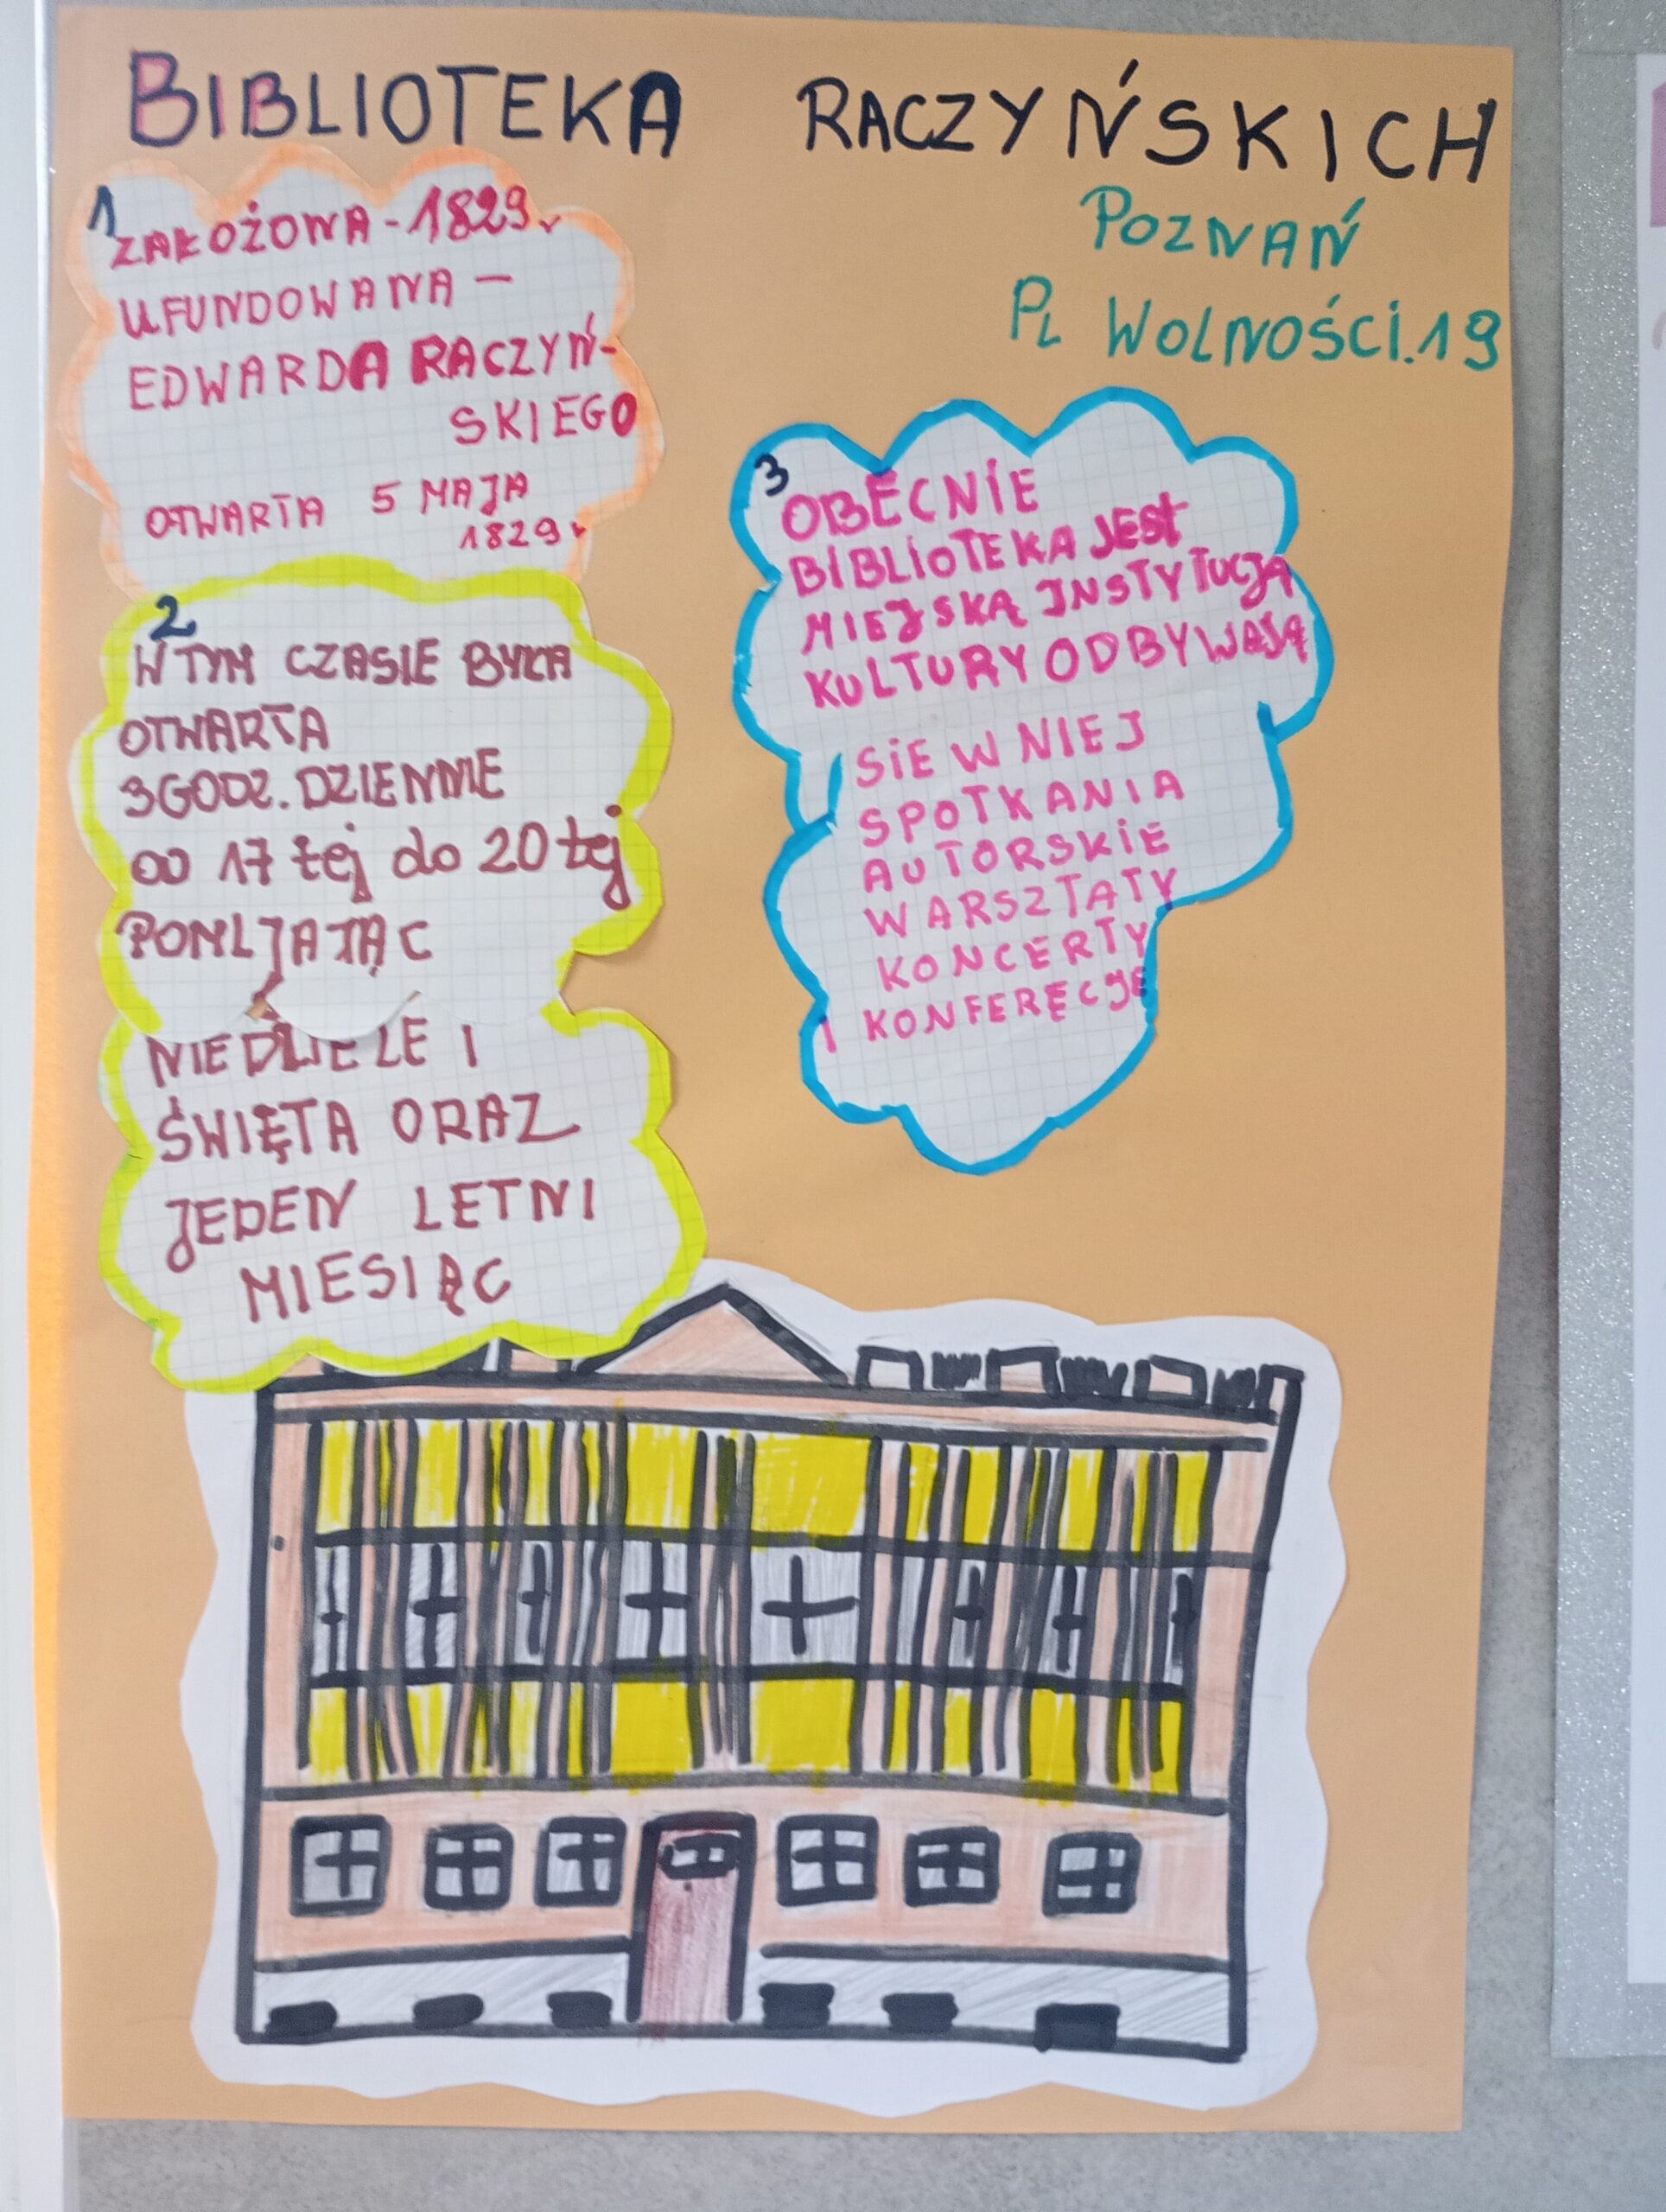 BIBLIOTEKA RACZYŃSKICH
POZNAŃ
PL WOLNOŚCI.19
1
ZAŁOŻOWA - 1829r
UFUNDOWANA -
EDWARDA RACZYŃ-
SKIEGO
OTWARTA 5 MAJA
1829r
2
W TYM CZASIE BYŁA
OTWARTA
3GODZ. DZIENNIE
OD 17 tej do 20 tej
POMIJAJĄC
NIEDZIELE I
ŚWIĘTA ORAZ
JEDEN LETNI
MIESIĄC
3
OBECNIE
BIBLIOTEKA JEST
MIEJSKĄ INSTYTUCJĄ
KULTURY ODBYWAJĄ
SIE W NIEJ
SPOTKANIA
AUTORSKIE
WARSZTATY
KONCERTY
I KONFERĘCJE